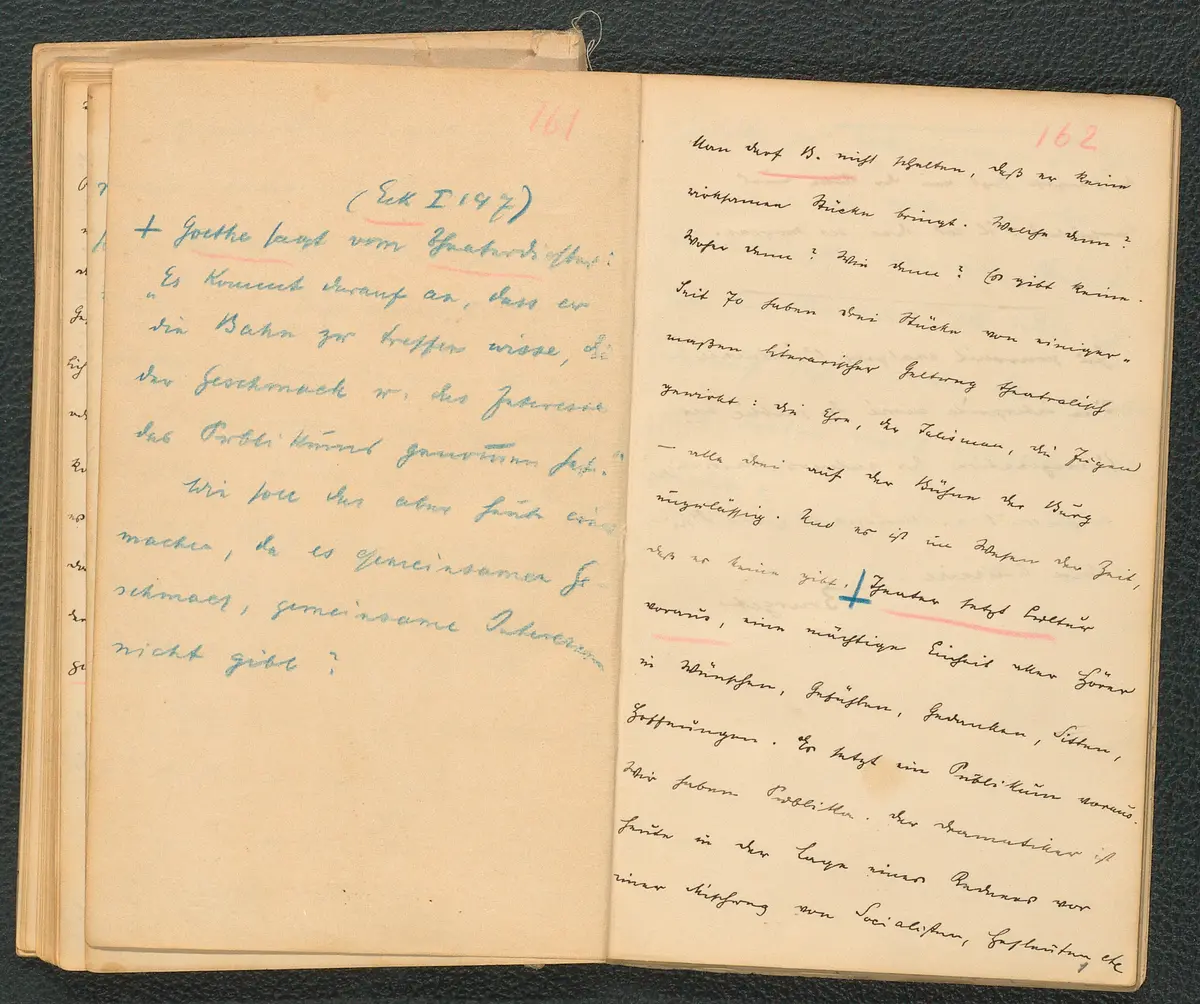 161
(Eck I 147)
+ Goethe sagt vom Theaterdichter:
"Es kommt darauf an, dass er
die Bahn zu treffen wisse, die
der Geschmack u. das Interesse
des Publikums genommen hat."
Wie soll das aber heute einer
machen, da es gemeinsamen Ge-
schmack, gemeinsame Interessen
nicht gibt?
162
Man darf B. nicht schelten, daß er keine
wirksamen Stücke bringt. Welche denn?
Woher denn? Wie denn? Es gibt keine.
Seit 70 haben drei Stücke von einiger-
maßen literarischer Geltung theatralisch
gewirkt: die Ehre, der Talisman, die Jugend
– alle drei auf der Bühne der Burg
unzulässig. Und es ist im Wesen der Zeit,
daß es keine gibt. + Theater setzt Cultur
voraus, eine mächtige Einheit aller Hörer
in Wünschen, Gefühlen, Gedanken, Sitten,
Hoffnungen. Es setzt ein Publikum voraus.
Wir haben Publika. Der Dramatiker ist
heute in der Lage eines Redners vor
einer Mischung von Socialisten, Hofleuten etc